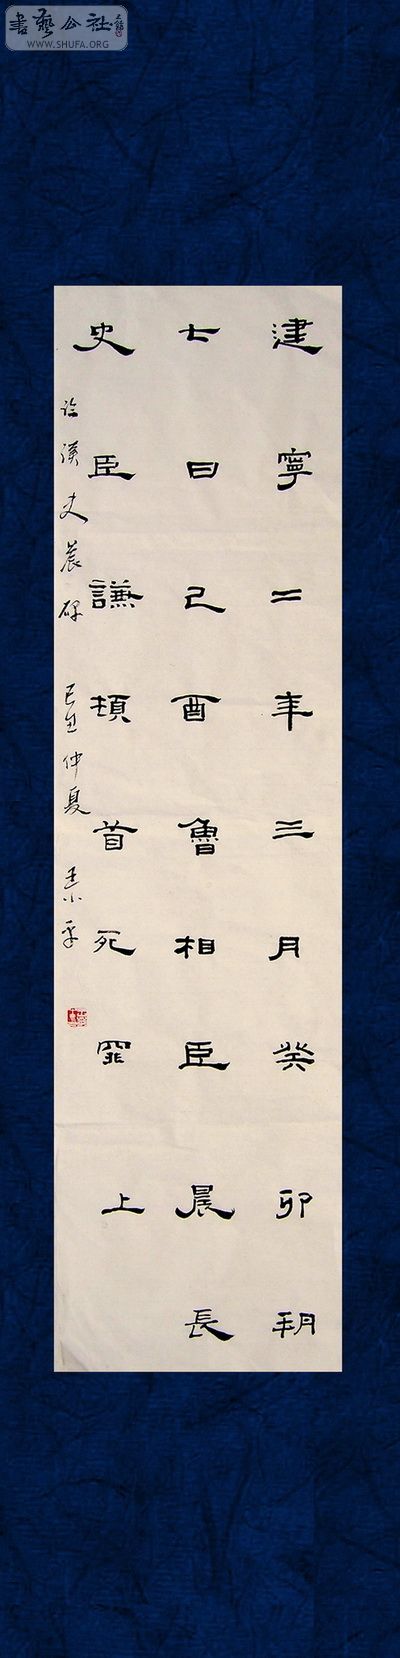 書藝公社
WWW.SHUFA.ORG
建寧二年三月癸卯朔
七日己酉魯相臣晨長
史臣謙頓首死罪上
臨漢史晨碑 己丑仲夏 小平